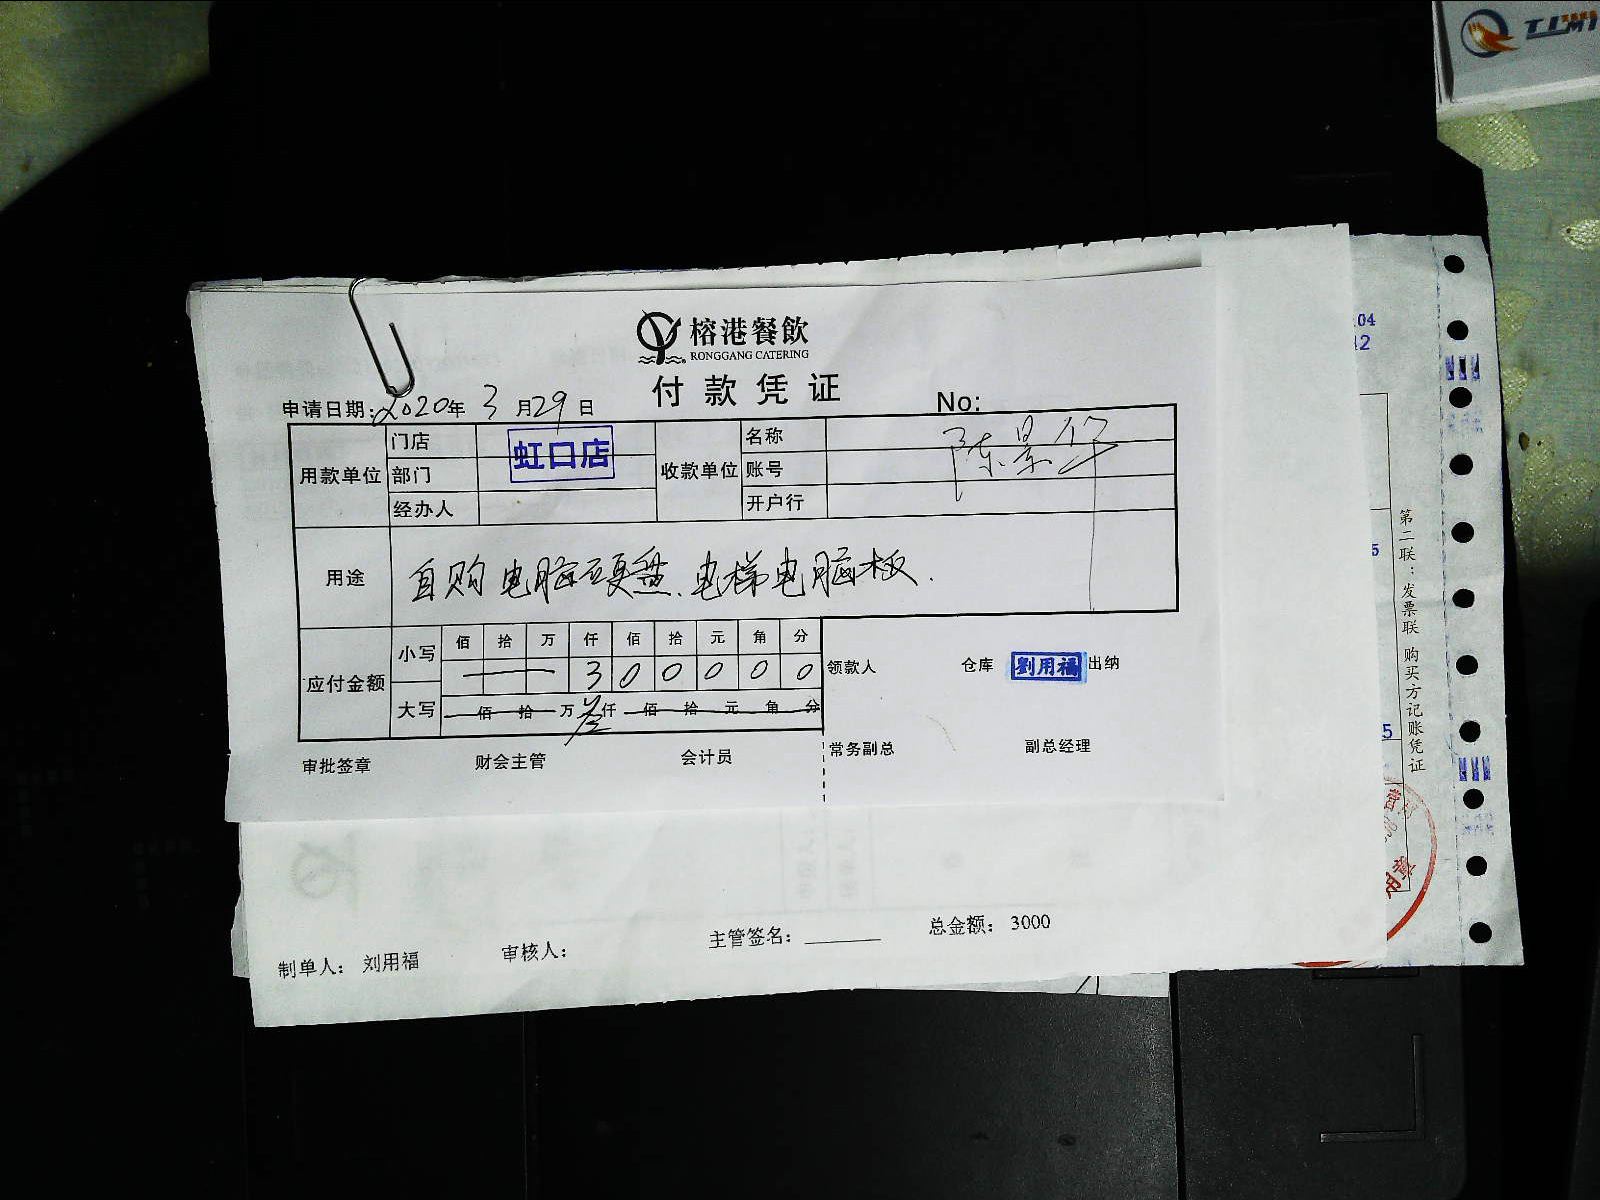 TIMI
榕港餐飲
RONGGANG CATERING
付款凭证
申请日期：2020年3月29日
No:
用款单位
门店
部门
经办人
虹口店
收款单位
名称
账号
开户行
陈景华
用途
自购电脑硬盘、电梯电脑板.
应付金额
小写
佰 拾 万 仟 佰 拾 元 角 分
3 0 0 0 0 0
大写
佰 拾 万 叁仟 佰 拾 元 角 分
领款人
仓库
劉用福
出纳
审批签章
财会主管
会计员
常务副总
副总经理
制单人： 刘用福
审核人：
主管签名：
总金额： 3000
04
12
5
5
第二联：发票联 购买方记账凭证